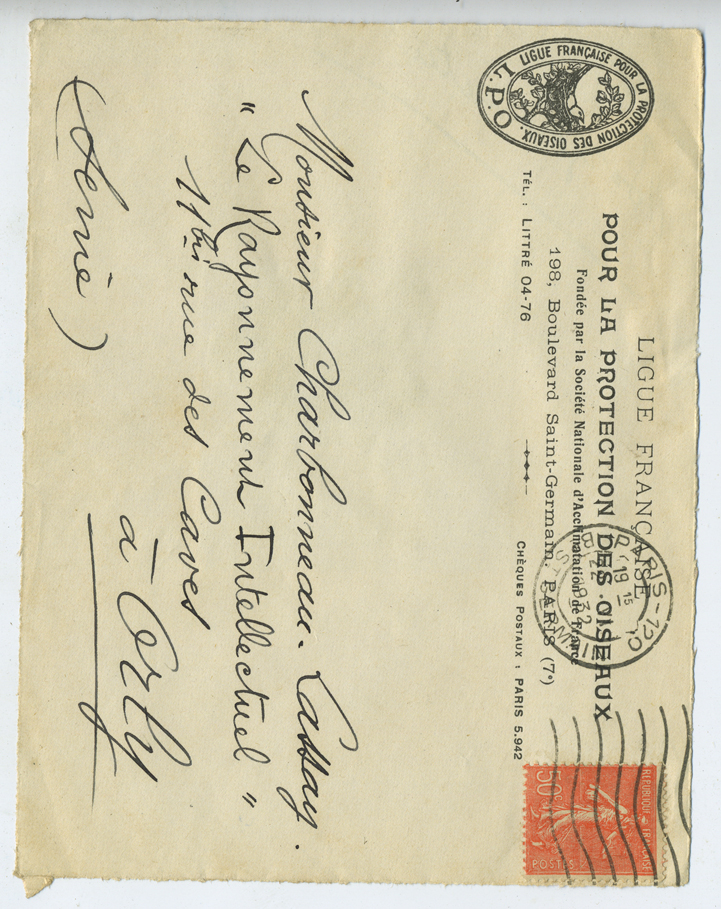 LIGUE FRANÇAISE POUR LA PROTECTION DES OISEAUX.
L.P.O
LIGUE FRANÇAISE
POUR LA PROTECTION DES OISEAUX
Fondée par la Société Nationale d'Acclimatation de France
198, Boulevard Saint-Germain, PARIS (7e)
TÉL. : LITTRÉ 04-76
CHÈQUES POSTAUX : PARIS 5.942
PARIS-120
19 15
ST GERMAIN
REPUBLIQUE FRANÇAISE
50c
POSTES
Monsieur Charbonneau-Lassay.
"Le Rayonnement Intellectuel"
11 bis rue des Caves
à Orly
(Seine)